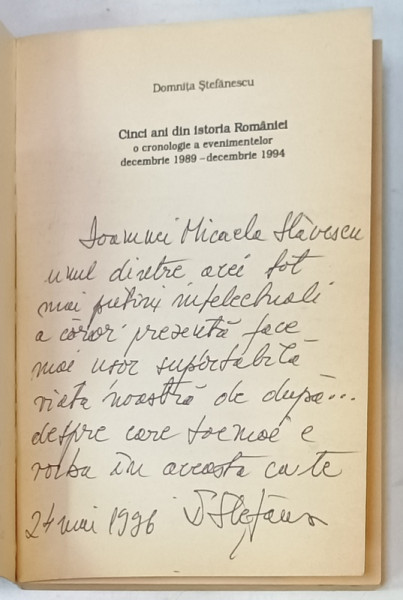 Domnița Ștefănescu
Cinci ani din istoria României
o cronologie a evenimentelor
decembrie 1989 – decembrie 1994
Doamnei Micaela Slăvescu
unul dintre acei tot
mai puțini intelectuali
a căror prezență face
mai ușor suportabilă
viața noastră de după...
despre care tocmai e
vorba în aceasta carte
24 mai 1996 DȘtefăn